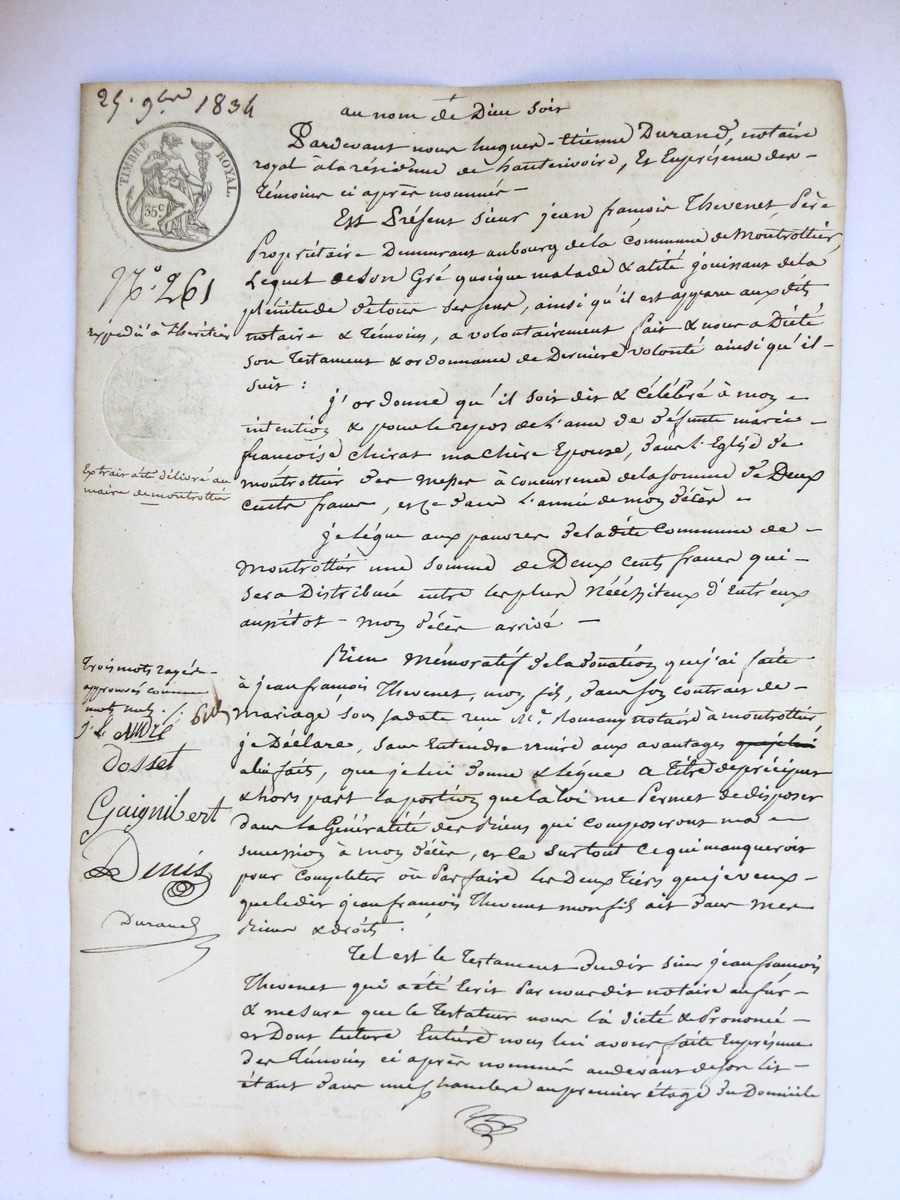 25. 9bre 1834
au nom de Dieu soit
TIMBRE ROYAL.
35c
Pardevant nous hugues-Etienne Durand, notaire
royal à la résidence de hauterivoire, Et En présence des
témoins ci après nommés
Est Présent sieur jean françois Thevenet Père
Propriétaire Demeurant au bourg de la Commune de Montrottier,
Lequel de son Gré quoique malade & alité jouissant de la
plénitude de tous ses sens, ainsi qu'il est apparu aux dits
notaire & témoins, a volontairement fait & nous a Dicté
son testament & ordonnance de Dernière volonté ainsi qu'il
suit :
N°. 261
expédié à l'héritier
j'ordonne qu'il soit dit & célébré à mon
intention & pour le repos de l'ame de défunte marie
françoise chirat ma chère Epouse, dans l'Eglise de
montrottier des messes à concurrence de la somme de Deux
cents francs, et ce dans l'année de mon décès
Extrait a été délivré au
maire de montrottier
je lègue aux pauvres de la dite Commune de
Montrottier une somme de Deux cents francs qui
sera Distribuée entre les plus Nécéssiteux d'Entr'eux
aussitot mon décès arrivé
Bien Mémoratif de la donation que j'ai faite
à jean françois Thevenet, mon fils, dans son contrat de
mariage sous sa date reçu Me. Romany notaire à montrottier
je Déclare, sans Entendre nuire aux avantages que je lui
a lui faits, que je lui donne & lègue a titre de préciput
& hors part la portion que la loi me Permet de disposer
dans la Généralité des Biens qui composeront ma
succession à mon décès, et le surtout ce qui manqueroit
pour Completter ou Parfaire les Deux tiers que je veux
que le dit jean françois Thevenet mon fils ait dans mes
Biens & droits.
trois mots rayés
approuvés comme
mots nuls
Dosset
Gaignibert
Denis
Durand
Tel est le testament du dit sieur jean françois
Thevenet qui a été Ecrit Par nous dit notaire au fur
& mesure que le Testateur nous l'a dicté & Prononcé
et Dont lecture Entière nous lui avons faite En présence
des témoins ci après nommés au devant de son lit
étant dans une chambre au premier étage du Domicile